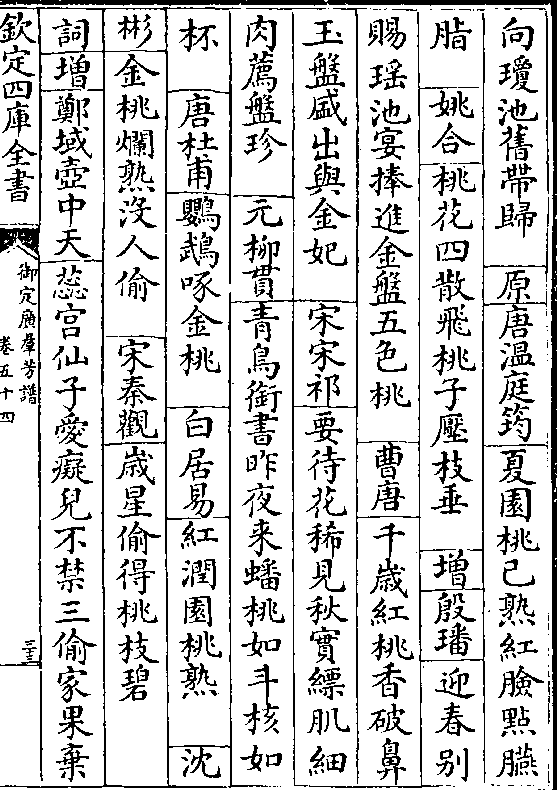 向瓊池舊帶歸　原唐溫庭筠夏園桃已熟紅臉點臙
脂　姚合桃花四散飛桃子壓枝垂　增殷璠迎春别
賜瑶池宴捧進金盤五色桃　曹唐千歲紅桃香破鼻
玉盤盛出與金妃　宋宋祁要待花稀見秋實縹肌細
肉薦盤珍　元柳貫青鳥銜書昨夜来蟠桃如斗核如
杯　唐杜甫鸚鵡啄金桃　白居易紅潤園桃熟　沈
彬金桃爛熟沒人偷　宋秦觀歲星偷得桃枝碧
詞增鄭域壺中天蕊宮仙子愛癡兒不禁三偷家果棄
欽定四庫全書
御定廣羣芳譜
卷五十四
三十三